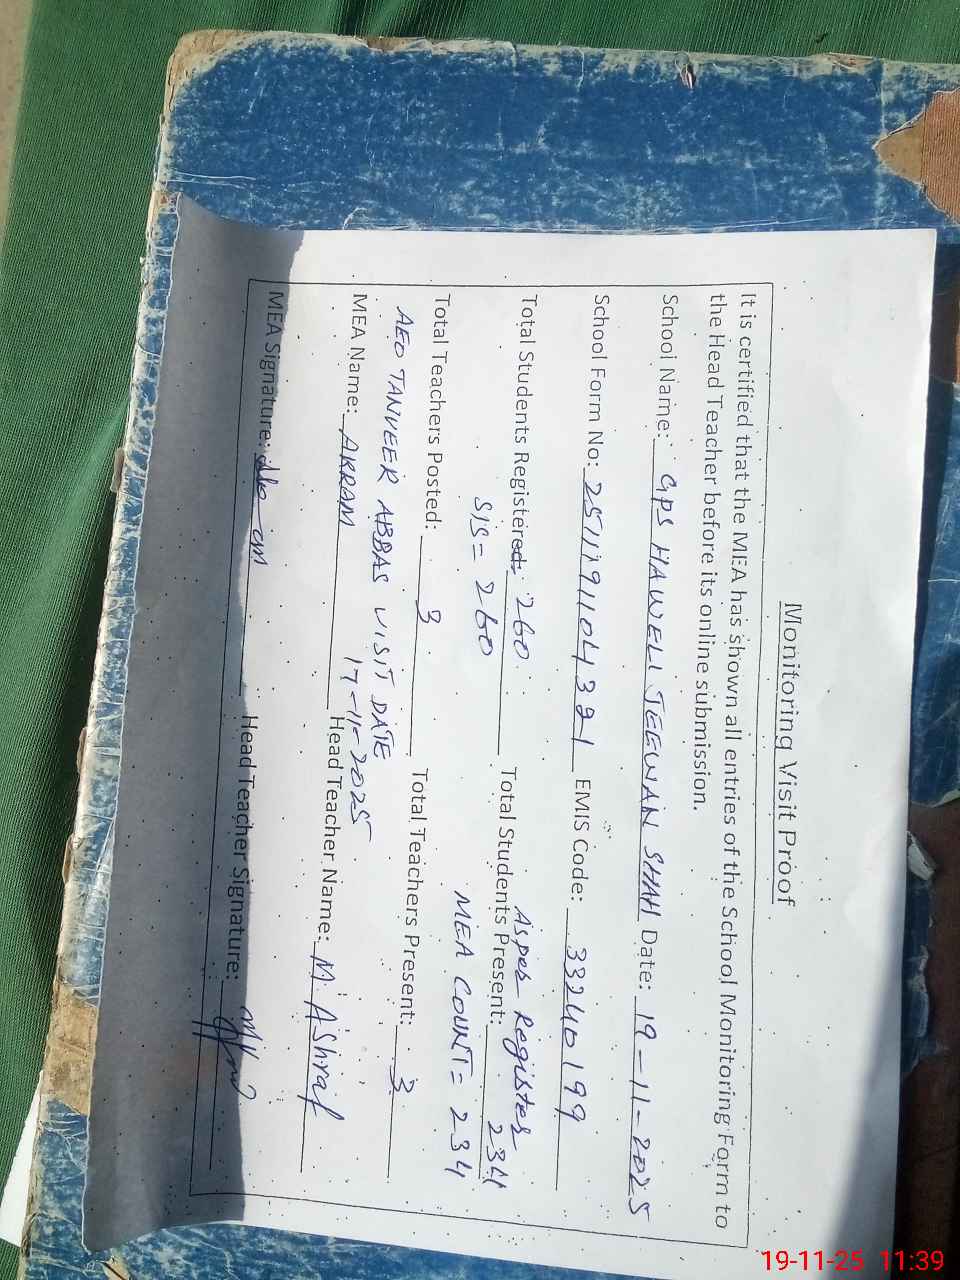 Monitoring Visit Proof
It is certified that the MEA has shown all entries of the School Monitoring Form to
the Head Teacher before its online submission.
School Name: GPS HAWELI JEEWAN SHAH Date: 19-11-2025
School Form No: 2511191104321 EMIS Code: 33240199
Total Students Registered: 260 Total Students Present: Asper Register 234
SIS= 260 MEA COUNT= 234
Total Teachers Posted: 3 Total Teachers Present: 3
AEO TANVEER ABBAS VISIT DATE
17-11-2025
MEA Name: AKRAM Head Teacher Name: M. Ashraf
MEA Signature: Head Teacher Signature:
19-11-25 11:39